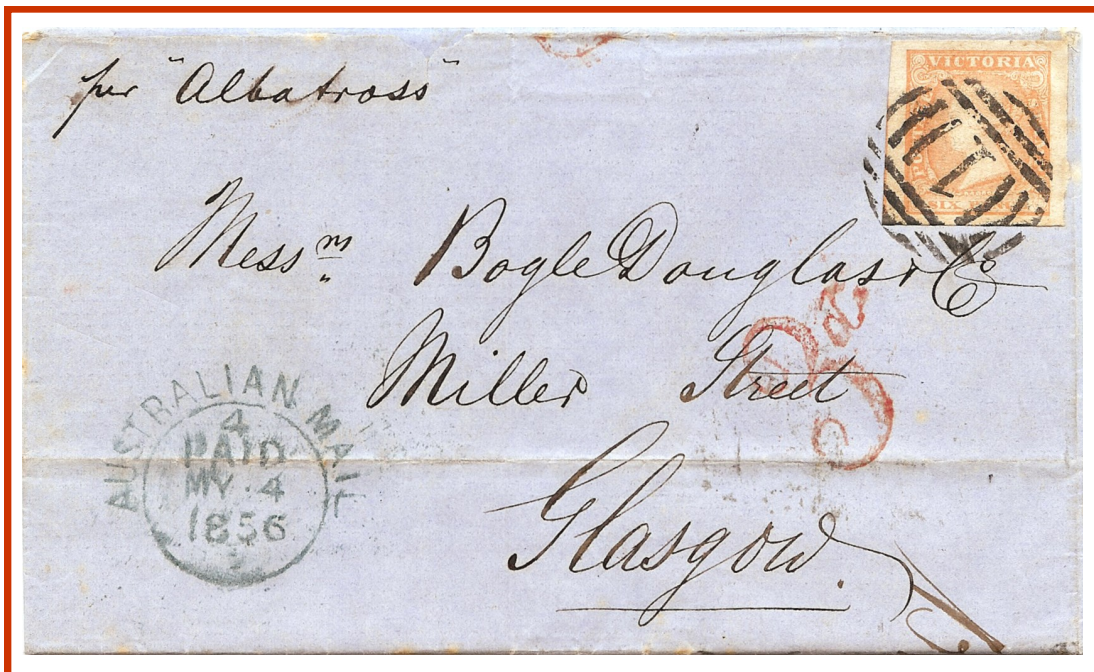 per "Albatross"
VICTORIA
SIX PENCE
1
Messrs Bogle Douglas & Co
Miller Street
3d
Glasgow.
AUSTRALIAN MAIL
4
PAID
MY 4
1856